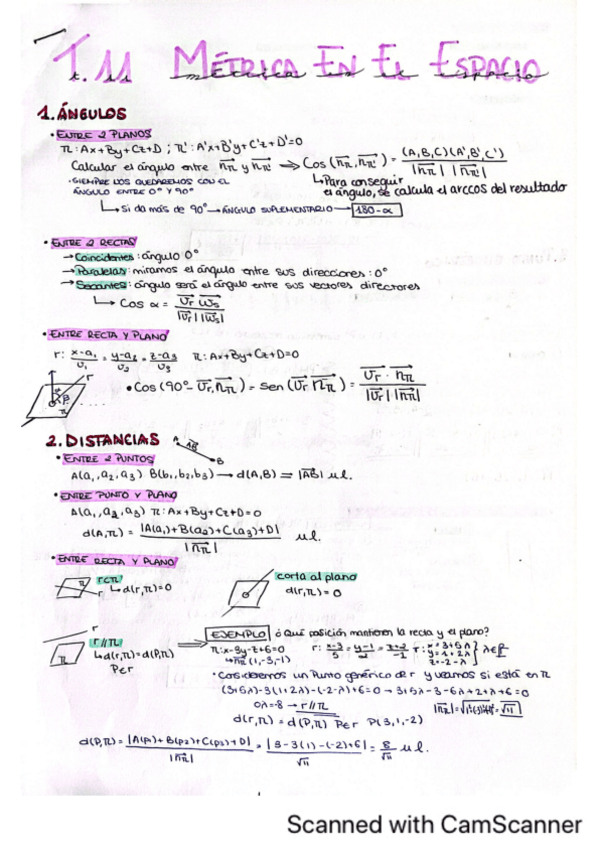 T.11 MÉTRICA EN EL ESPACIO
métrica en el espacio
1. ÁNGULOS
• ENTRE 2 PLANOS
π: Ax+By+Cz+D ; π': A'x+B'y+C'z+D'=0
Calcular el ángulo entre n⃗π y n⃗π' ⇒ Cos (n⃗π, n⃗π') = (A,B,C)(A',B',C') / |n⃗π| |n⃗π'|
↳ Para conseguir el ángulo, se calcula el arccos del resultado
• SIEMPRE NOS QUEDAREMOS CON EL
ÁNGULO ENTRE 0º Y 90º
↳ Si da más de 90º → ÁNGULO SUPLEMENTARIO → 180-α
• ENTRE 2 RECTAS
→ Coincidentes: ángulo 0º
→ Paralelas: miramos el ángulo entre sus direcciones: 0º
→ Secantes: ángulo será el ángulo entre sus vectores directores
↳ Cos α = v⃗r w⃗s / |v⃗r| |w⃗s|
• ENTRE RECTA Y PLANO
r: x-a₁/v₁ = y-a₂/v₂ = z-a₃/v₃ π: Ax+By+Cz+D=0
r
β
π
• Cos (90º- v⃗r, n⃗π) = Sen (v⃗r n⃗π) = v⃗r · n⃗π / |v⃗r| |n⃗π|
2. DISTANCIAS
A AB B
• ENTRE 2 PUNTOS
A(a₁,a₂,a₃) B(b₁,b₂,b₃) → d(A,B) = |AB| u.l.
• ENTRE PUNTO Y PLANO
A(a₁,a₂,a₃) π: Ax+By+Cz+D=0
d(A,π) = |A(a₁)+B(a₂)+C(a₃)+D| / |n⃗π| u.l.
• ENTRE RECTA Y PLANO
r⊂π
↳ d(r,π)=0
corta al plano
d(r,π)=0
r
r // π
↳ d(r,π)=d(P,π)
P∈r
π
⇒ EJEMPLO ¿Qué posición mantienen la recta y el plano?
π: x-3y-z+6=0 r: x-3/5 = y-1/2 = z+2/-1 r: x=3+5λ y=1+2λ z=-2-λ λ∈ℝ
↳ n⃗π (1,-3,-1)
• Consideremos un Punto genérico de r y veamos si está en π
(3+5λ)-3(1+2λ)-(-2-λ)+6=0 → 3+5λ-3-6λ+2+λ+6=0
0λ=-8 → r // π
|n⃗π|=√1²+(-3)²+(-1)²=√11
d(r,π) = d(P,π) P∈r P(3,1,-2)
d(P,π) = |A(p₁)+B(p₂)+C(p₃)+D| / |n⃗π| = |3-3(1)-(-2)+6| / √11 = 8/√11 u.l.
Scanned with CamScanner